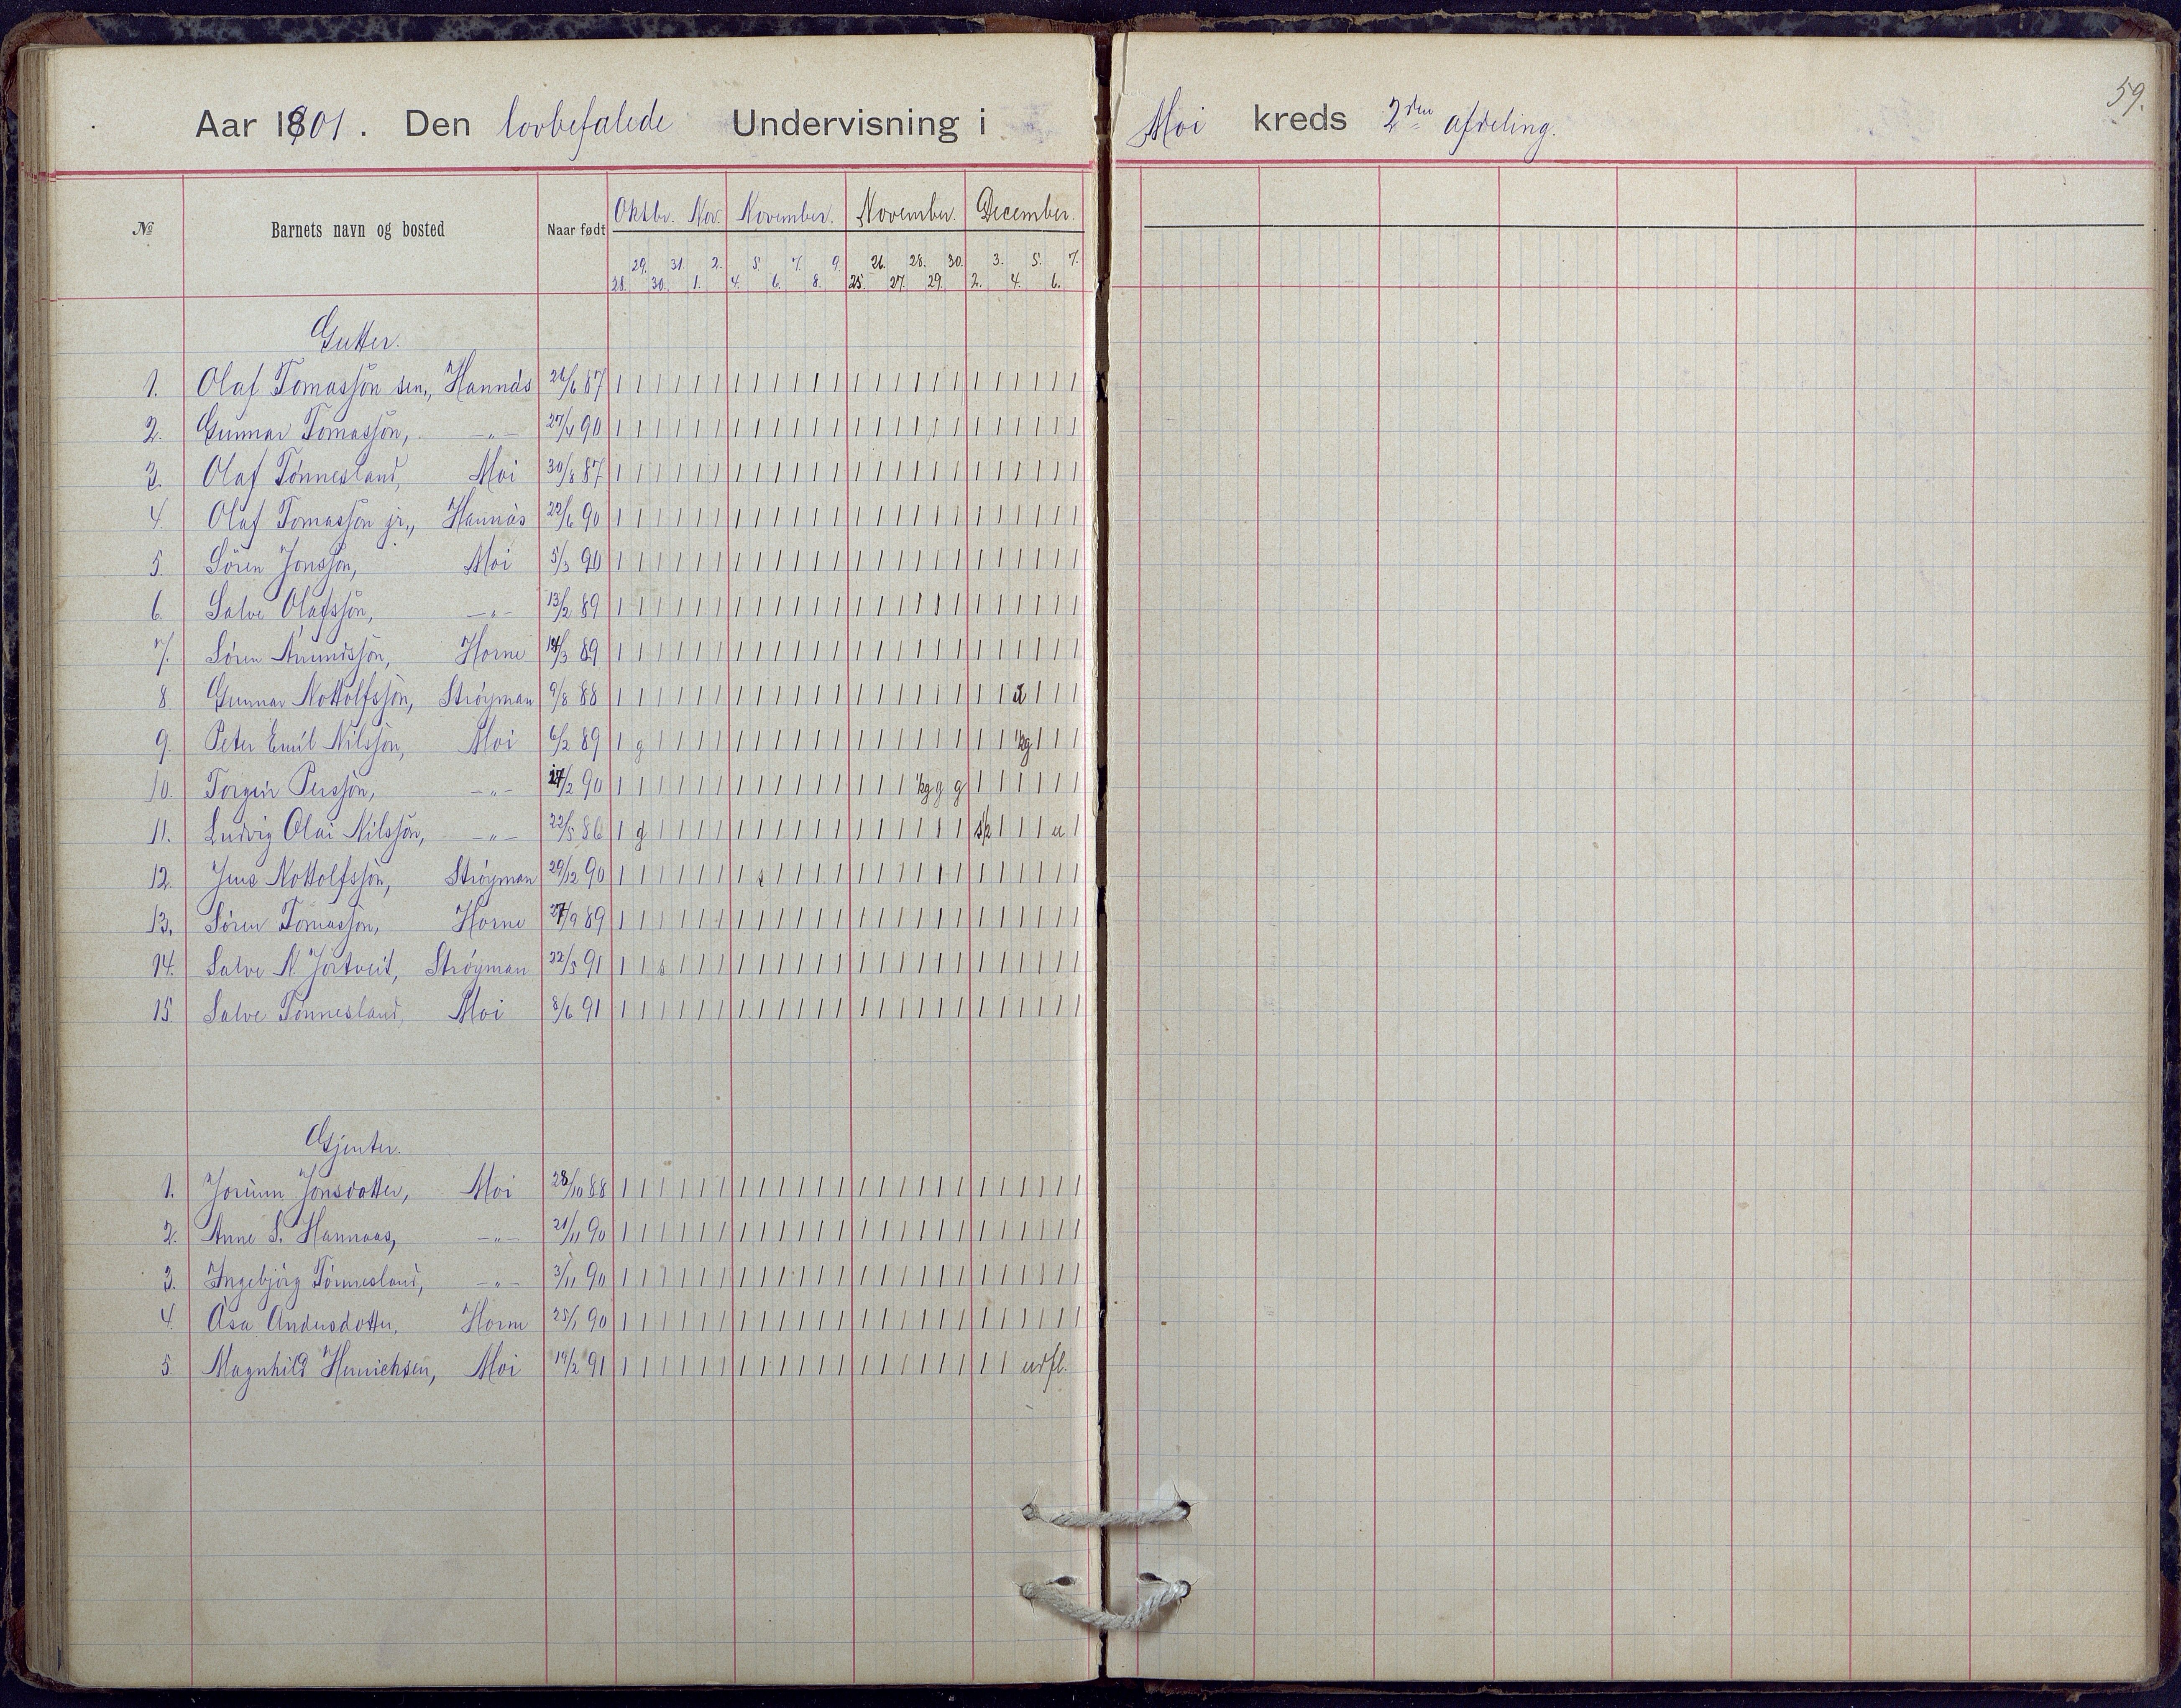 59.
Aar 1901. Den lovbefalede Undervisning i Moi kreds 2den afdeling.
№ Barnets navn og bosted Naar født Oktbr. Nov. November. November. December.
29. 31. 2. 5. 7. 9. 26. 28. 30. 3. 5. 7.
28. 30. 1. 4. 6. 8. 25. 27. 29. 2. 4. 6.
Gutter.
1. Olaf Tomassön sen., Hannås 26/6 87 | | | | | | | | | | | | | | | | | | | | | | | |
2. Gunnar Tomassön, -"- 27/4 90 | | | | | | | | | | | | | | | | | | | | | | | |
3. Olaf Tönnesland, Moi 30/8 87 | | | | | | | | | | | | | | | | | | | | | | | |
4. Olaf Tomassön jr., Hannås 22/6 90 | | | | | | | | | | | | | | | | | | | | | | | |
5. Sören Jonssön, Moi 5/3 90 | | | | | | | | | | | | | | | | | | | | | | | |
6. Salve Olafssön, -"- 13/2 89 | | | | | | | | | | | | | | | | | | | | | | | |
7. Sören Anundssön, Horne 14/3 89 | | | | | | | | | | | | | | | | | | | | | | | |
8. Gunnar Nottolfssön, Ströyman 9/8 88 | | | | | | | | | | | | | | | | | | | | | | |
9. Peter Emil Nilssön, Moi 6/2 89 | g | | | | | | | | | | | | | | | | | | ½g | | |
10. Torgeir Perssön, -"- 27/2 90 | | | | | | | | | | | | | | | ½g g g | | | | | |
11. Ludvig Olai Nilssön, -"- 22/5 86 | g | | | | | | | | | | | | | | | | | | | u |
12. Jens Nottolfssön, Ströyman 29/12 90 | | | | | | | s | | | | | | | | | | | | | | | |
13. Sören Tomassön, Horne 27/9 89 | | | | | | | | | | | | | | | | | | | | | | | |
14. Salve N. Jortveit, Ströyman 22/5 91 | | s | | | | | | | | | | | | | | | | | | | | |
15. Salve Tönnesland, Moi 8/6 91 | | | | | | | | | | | | | | | | | | | | | | | |
Gjenter.
1. Jorunn Jonsdotter, Moi 28/10 88 | | | | | | | | | | | | | | | | | | | | | | | |
2. Anne S. Hannaas, -"- 21/11 90 | | | | | | | | | | | | | | | | | | | | | | | |
3. Ingebjörg Tönnesland, -"- 3/11 90 | | | | | | | | | | | | | | | | | | | | | | | |
4. Åsa Andersdotter, Horne 25/1 90 | | | | | | | | | | | | | | | | | | | | | | | |
5. Magnhild Henrichsen, Moi 19/2 91 | | | | | | | | | | | | | | | | | | | | udfl.